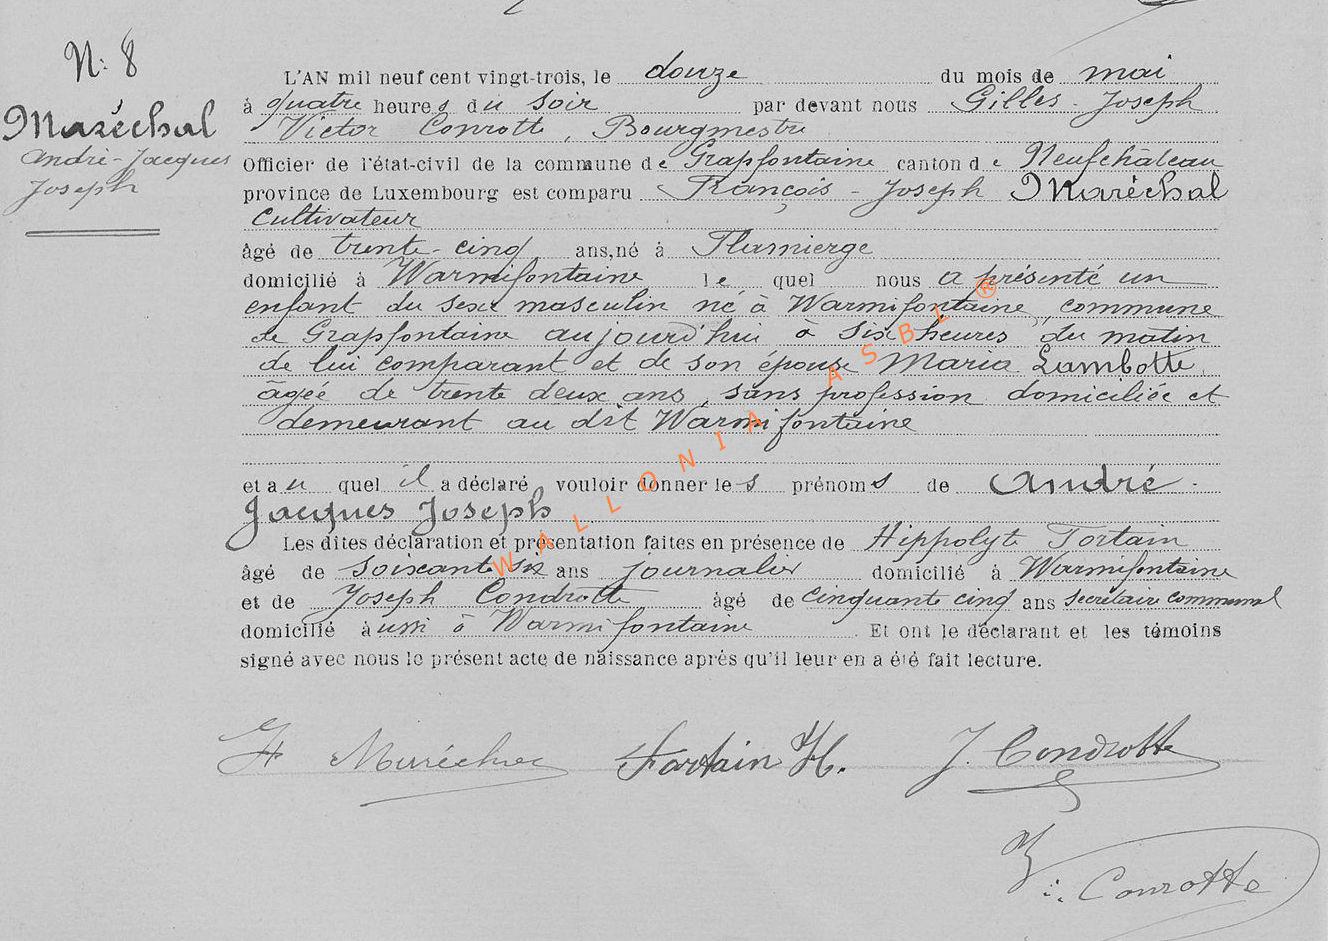 N: 8
Maréchal
André-Jacques
Joseph
L'AN mil neuf cent vingt-trois, le douze du mois de mai
à quatre heures du soir par devant nous Gilles-Joseph
Victor Conrotte, Bourgmestre
Officier de l'état-civil de la commune de Grapfontaine canton de Neufchâteau
province de Luxembourg est comparu François-Joseph Maréchal
Cultivateur
âgé de trente-cinq ans, né à Flamierge
domicilié à Warmifontaine lequel nous a présenté un
enfant du sexe masculin né à Warmifontaine, commune
de Grapfontaine aujourd'hui à six heures du matin
de lui comparant et de son épouse Maria Lambotte
âgée de trente deux ans, sans profession domiciliée et
demeurant au dit Warmifontaine
et au quel il a déclaré vouloir donner les prénoms de André-
Jacques Joseph
Les dites déclaration et présentation faites en présence de Hippolyte Tortain
âgé de soixante six ans journalier domicilié à Warmifontaine
et de Joseph Condrotte âgé de cinquante cinq ans secrétaire communal
domicilié aussi à Warmifontaine. Et ont le déclarant et les témoins
signé avec nous le présent acte de naissance après qu'il leur en a été fait lecture.
WALLONIA ASBL ®
Maréchal Tortain H. J. Condrotte
Conrotte